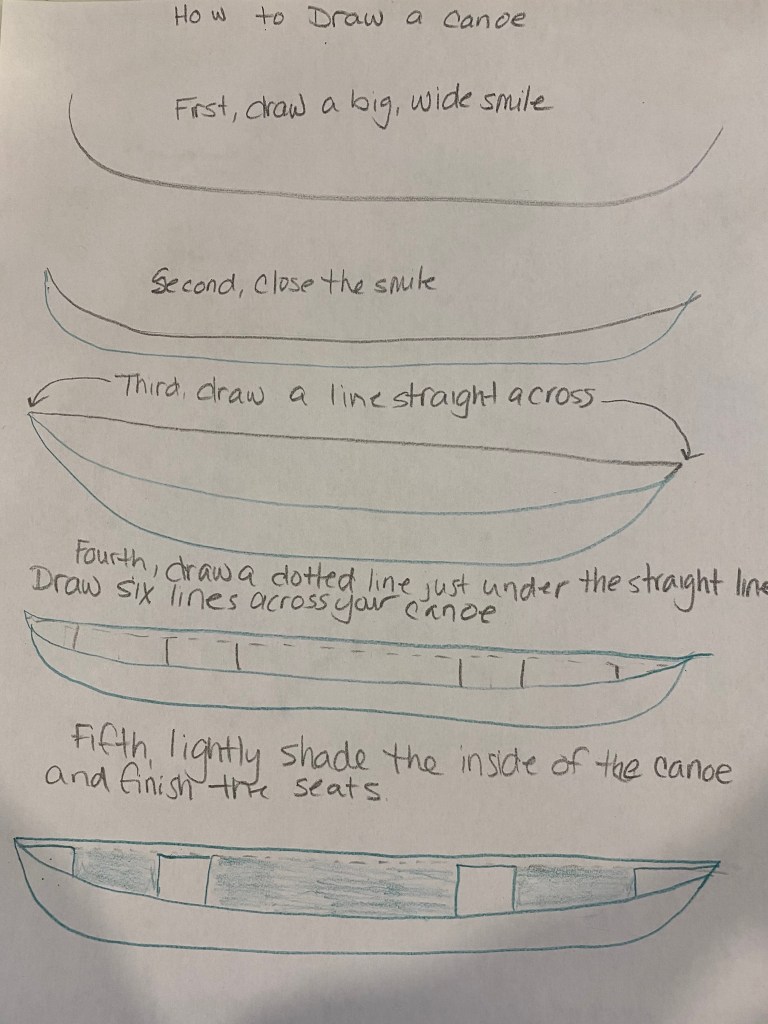 How to Draw a Canoe
First, draw a big, wide smile
Second, close the smile
Third, draw a line straight across
Fourth, draw a dotted line just under the straight line
Draw six lines across your canoe
Fifth, lightly shade the inside of the canoe
and finish the seats.